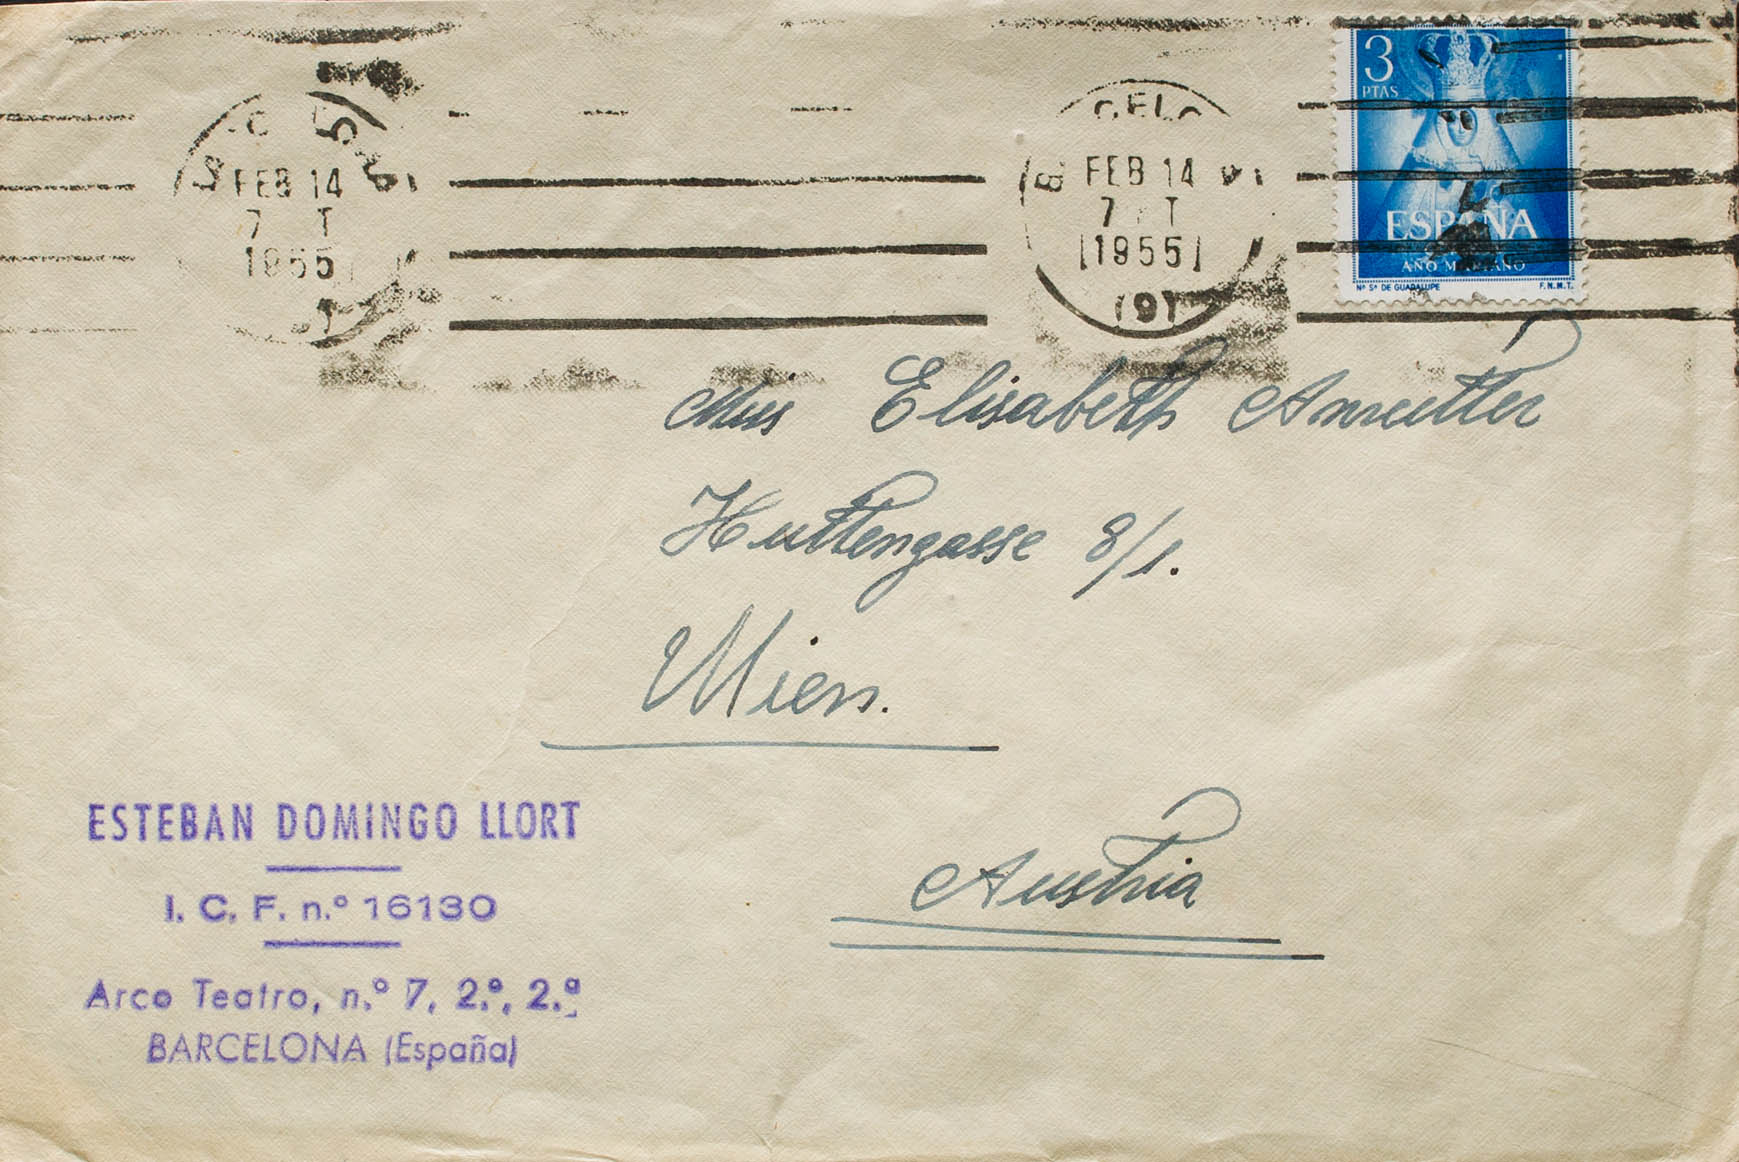 FEB 14
7 T
1955
CEL
FEB 14
7 T
1955
(9)
3
PTAS
ESPAÑA
AÑO MARIANO
Nª Sª DE GUADALUPE F.N.M.T.
Miss Elisabeth Amrutter
Huttengasse 8/1.
Wien.
Austria
ESTEBAN DOMINGO LLORT
I. C. F. n.º 16130
Arco Teatro, n.º 7, 2.º, 2.ª
BARCELONA (España)